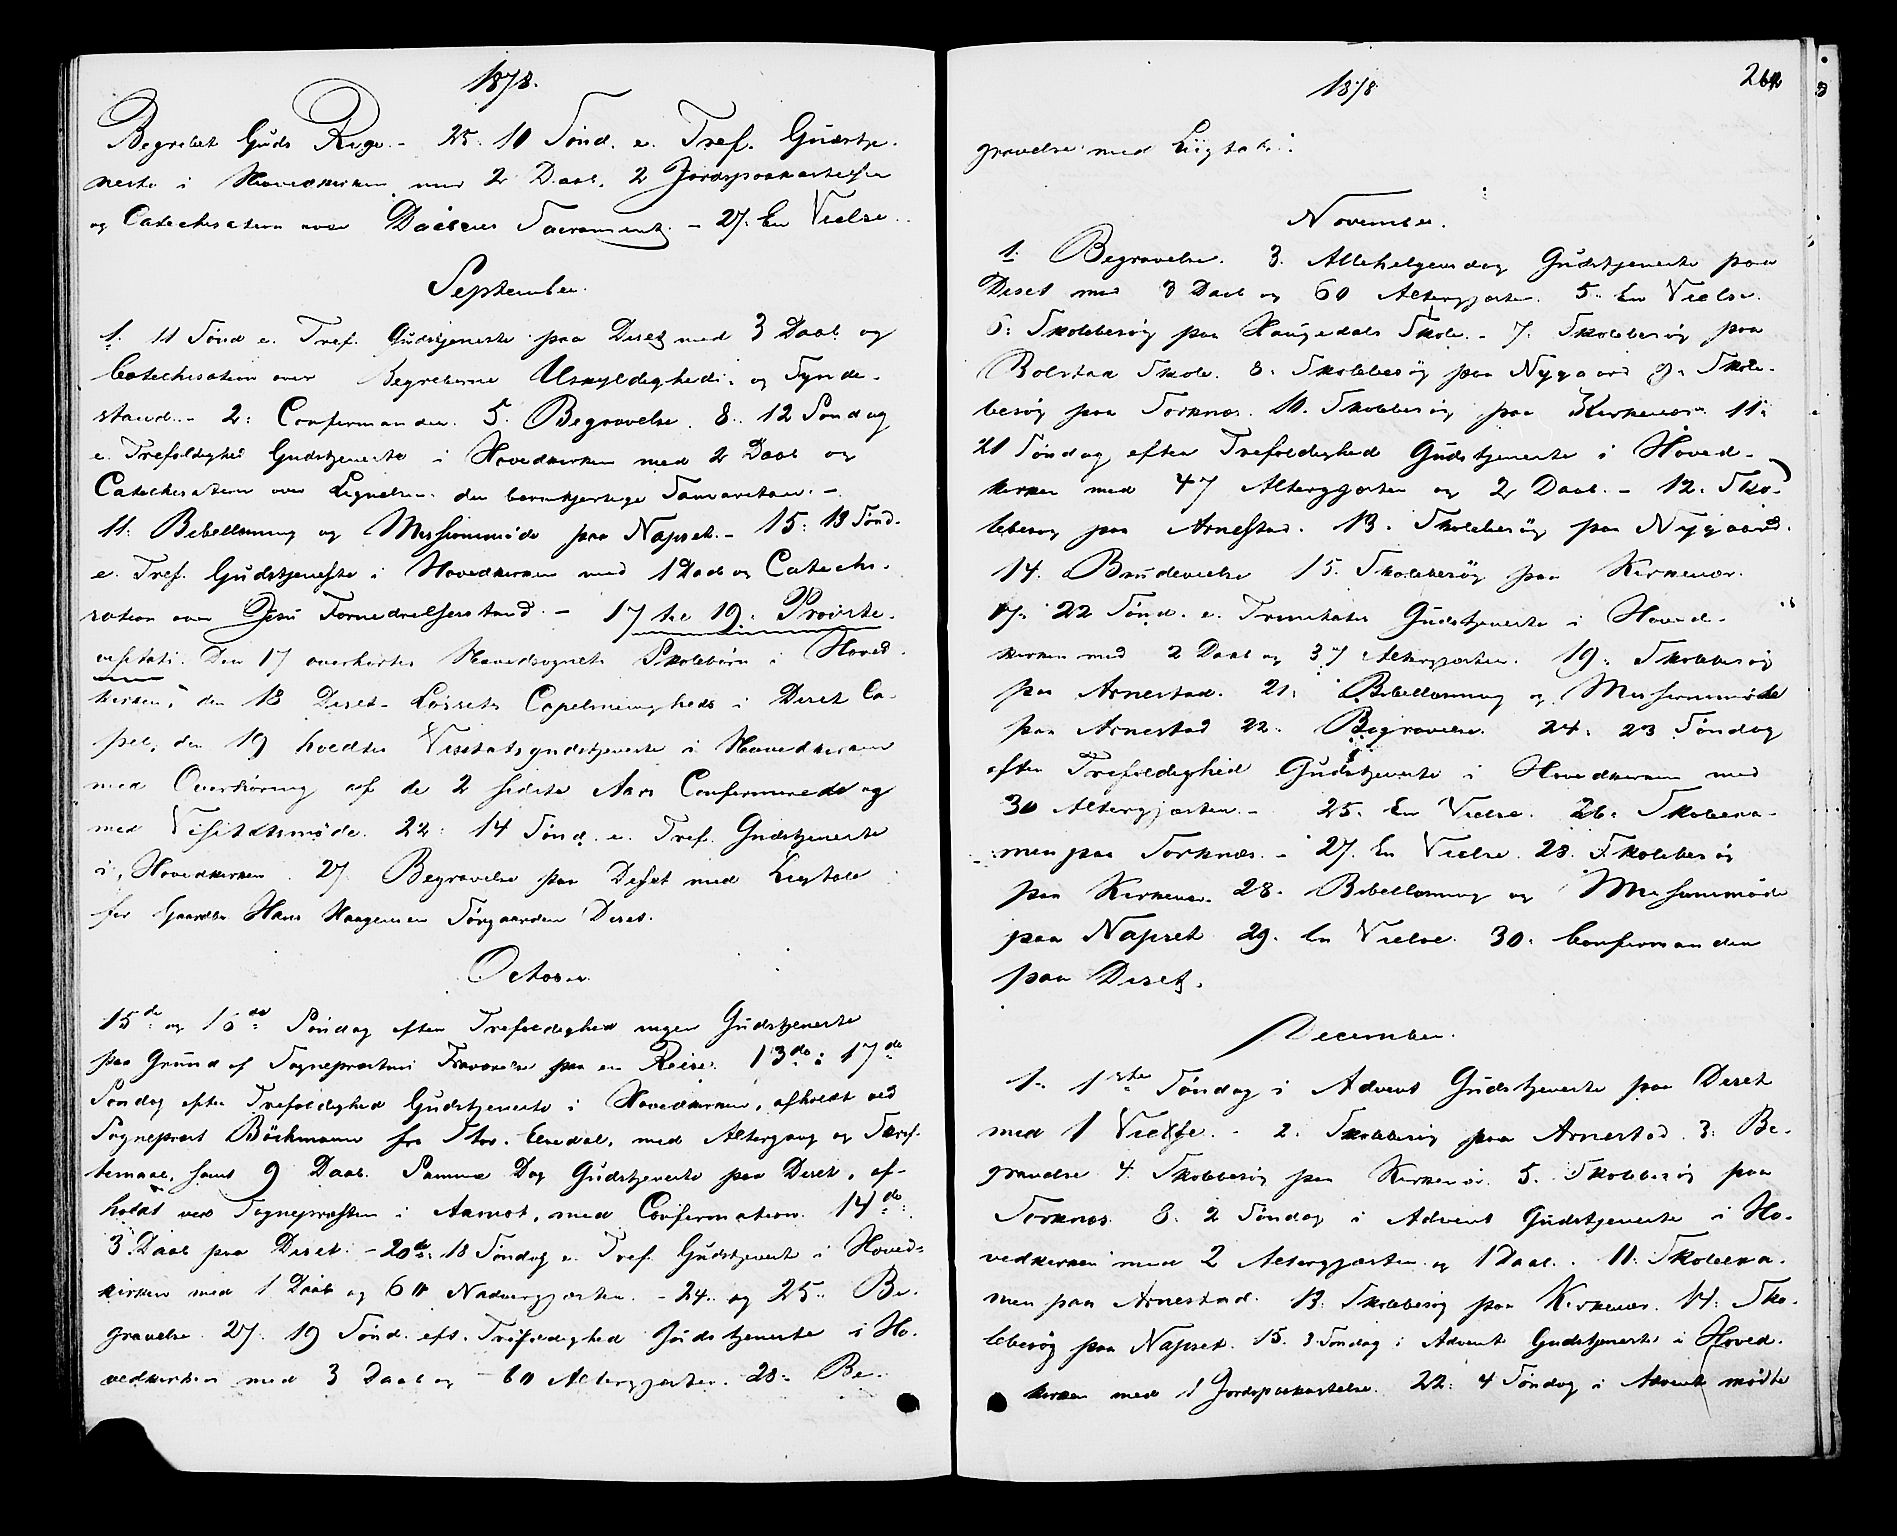 1878.
Begrebet Guds Rige. - 25. 10 Sønd. e. Tref. Gudstje-
neste i Hovedkirken med 2 Daab, 2 Jordspaakastelser
og Catechisation over Daabens Sacrament. - 27. En Vielse.
September.
1. 11 Sønd e. Tref. Gudstjeneste paa Deset med 3 Daab og
Catechisation over Begreberne Uskyldigheds- og Synde-
stand. - 2: Confirmander. 5. Begravelse. 8. 12 Søndag
e. Trefoldighed Gudstjeneste i Hovedkirken med 2 Daab og
Catechisation over Lignelsen: den barmhjertige Samaritan. -
11. Bibellæsning og Missionsmøde paa Napset. - 15: 13 Sønd.
e. Tref. Gudstjeneste i Hovedkirken med 1 Daab og Catechi-
sation over Jesu Fornedrelsesstand. - 17 til 19: Provste-
visitats. Den 17 overhørtes Hovedsognets Skolebørn i Hoved-
kirken, den 18 Deset-Lössets Capelmenigheds i Deset Ca-
pel, den 19 holdtes Visitatsgudstjeneste i Hovedkirken
med Overhøring af de 2 sidste Aars Confirmerede og
med Visitatsmøde. 22: 14 Sønd. e. Tref. Gudstjeneste
i Hovedkirken. 27. Begravelse paa Deset med Ligtale
for Gaardbr Hans Haagensen Deset.
October
15de og 16de Søndag efter Trefoldighed ingen Gudstjeneste
paa Grund af Sognepræstens Fraværelse paa en Reise. 13de: 17de
Søndag efter Trefoldighed Gudstjeneste i Hovedkirken, afholdt ved
Sognepræst Böckmann fra Stor-Elvedal, med Altergang og Skrif-
temaal, samt 9 Daab. Samme Dag Gudstjeneste paa Deset, af-
holdt ved Sognepræsten i Aamot, med Confirmation. 14de:
3 Daab paa Deset. - 20de: 18 Søndag e. Tref. Gudstjeneste i Hoved-
kirken med 1 Daab og 60 Nadvergjæster. - 24. og 25. Be-
gravelse. 27. 19 Sønd. eft. Trefoldighed Gudstjeneste i Ho-
vedkirken med 3 Daab og 60 Altergjæster. 28. Be-
1878
264
gravelse med Liigtale.
November.
1. Begravelse. 3. Allehelgensdag Gudstjeneste paa
Deset med 3 Daab og 60 Altergjæster. 5. En Vielse.
6: Skolebesøg paa Haugedals Skole. - 7. Skolebesøg paa
Bolstad Skole. 8. Skolebesøg paa Nygaard 9. Skole-
besøg paa Torknæs. 10. Skolebesøg paa Kirkenær. 11:
21 Søndag efter Trefoldighed Gudstjeneste i Hoved-
kirken med 47 Altergjæster og 2 Daab. - 12. Sko-
lebesøg paa Arnestad. 13. Skolebesøg paa Nygaard.
14. Brudevielse 15. Skolebesøg paa Kirkenær.
17. 22 Sønd. e. Trinitatis Gudstjeneste i Hoved-
kirken med 2 Daab og 37 Altergjæster. 19. Skolebesøg
paa Arnestad. 21. Bibellæsning og Missionsmøde
paa Arnestad 22. Begravelse. 24. 23 Søndag
efter Trefoldighed Gudstjeneste i Hovedkirken med
30 Altergjæster. - 25. En Vielse. 26. Skoleexa-
men paa Torknæs. - 27. En Vielse. 28. Skolebesøg
paa Kirkenær. 28. Bibellæsning og Missionsmøde
paa Napset 29. En Vielse. 30. Confirmanden
paa Deset.
December.
1. 1ste Søndag i Advent Gudstjeneste paa Deset
med 1 Vielse. - 2. Skolebesøg paa Arnestad. 3. Be-
gravelse 4. Skolebesøg paa Kirkenær. 5. Skolebesøg paa
Torknæs. 8. 2 Søndag i Advent Gudstjeneste i Ho-
vedkirken med 2 Altergjæster og 1 Daab. 11. Skoleexa-
men paa Arnestad. 13. Skolebesøg paa Kirkenær. 14. Sko-
lebesøg paa Napset. 15. 3 Søndag i Advent Gudstjeneste i Hoved-
kirken med 1 Jordspaakastelse. 22. 4 Søndag i Advent mødte